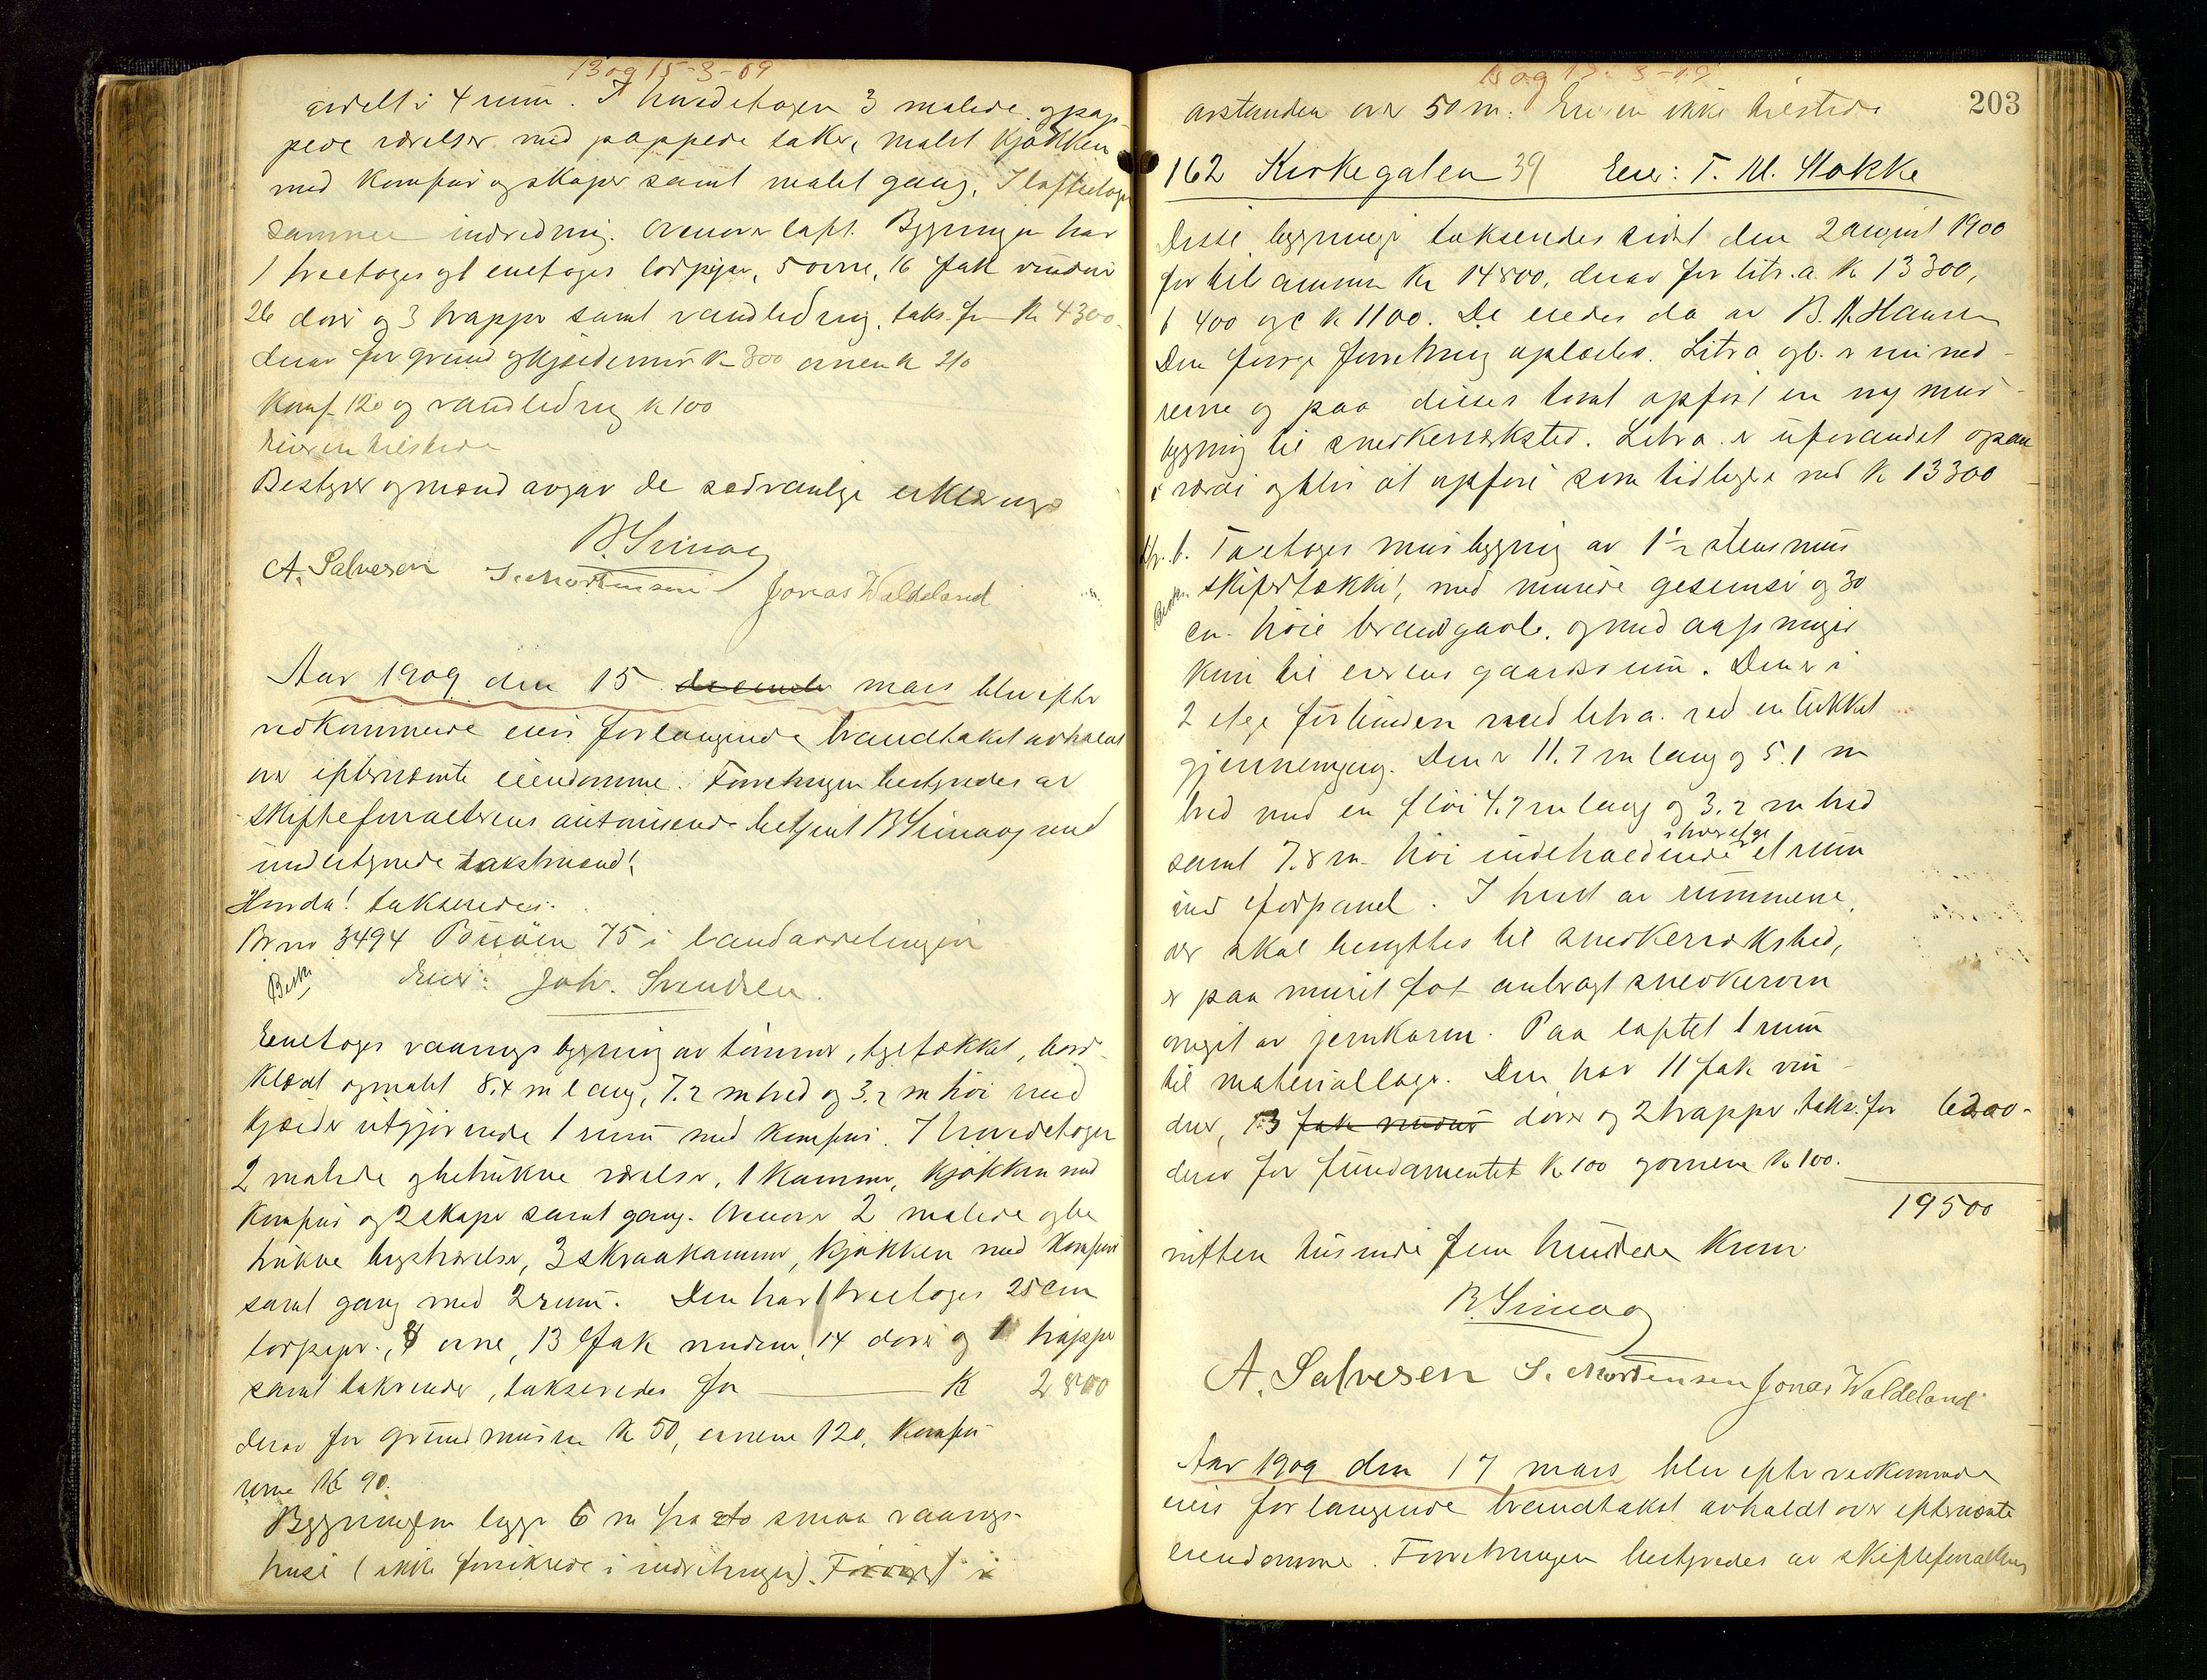 13 og 15-3-09
avdelt i 4 rum. I hovedetagen 3 malede og pap-
pede værelser med pappede taker, malet kjøkken
med komfur og skaper samt malet gang. I loftsetagen
samme indredning. Ovenover loft. Bygningen har
1 toetages og 1 enetages lodpipe, 5 ovne, 16 fak vinduer
26 dører og 3 trapper samt vandledning, taks. for Kr 4300.
derav for grund og kjeldermur Kr 300 ovnene Kr 210
Komf. 120 og vandledning Kr 100
Eieren tilstede
Bestyrer og mænd avgav de sædvanlige erklæringer
B. Sømoog
A. Salvesen S. Mortensen Jonas Waldeland
Aar 1909 den 15 mars blev efter
vedkommende eiers forlangende brandtakst avholdt
over efternævnte eiendomme. Forretningen bestyredes av
skifteforvalterens autoriserede betjent B Sømoog med
undertegnede takstmænd!
Hvorda! takseredes.
Br no 3494 Buøen 75 i landavdelingen
Eier: Joh. Svendsen.
Enetages vaaningsbygning av tømmer, tegltækket, bord-
klædt og malet 8.4 m lang, 7.2 m bred og 3.2 m høi med
kjelder utgjørende 1 rum med komfur. I hovedetagen
2 malede og betrukne værelser, 1 kammer, kjøkken med
komfur og 2 skaper samt gang. Ovenover 2 malede og be
trukne kvistværelser, 3 skraakammer, kjøkken med komfur
samt gang med 2 rum. Den har 1 toetages 25 cm
lodpipe, 4 ovne, 13 fak vinduer, 14 dører og 1 trappe
samt takrender, takseredes for K 2800
derav for grundmuren Kr 50, ovnene 120, Komfu-
rerne Kr 90.
Bygningen ligger 6 m fra to smaa vaanings-
huse (ikke forsikrede i indretningen). Forøvrigt er
13 og 17-3-09
203
avstanden over 50 m. Eieren ikke tilstede
162 Kirkegaten 39 Eier: T. M. Stokke
Disse bygninger takseredes sidst den 2 august 1900
for tilsammen Kr 14800, derav for litr. a. Kr 13300,
b 400 og c Kr 1100. De eiedes da av B. M. Hansen
Den forrige forretning oplæstes. Litr b og c er nu ned-
revne og paa disses tomt opført en ny mur-
bygning til snedkerværksted. Litr a er uforandret ogsaa
i værdi og blir at opføre som tidligere med Kr 13300
Litr. b. Toetages mursbygning av 1½ stens mur
skifertækket, med murede gesimser og 30
cm. høie brandgavle, og med aapninger
kun til eierens gaardsrum. Den er i
2 etage forbunden med litr a. ved en lukket
gjennemgang. Den er 11.7 m lang og 5.1 m
bred med en fløi 4.7 m lang og 3.2 m bred
samt 7.8 m. høi indeholdende i hver etage et rum
med forpanel. I hvert av rummene,
der skal benyttes til snedkerværksted,
er paa muret fot anbragt snedkerovn
omgit av jernkarm. Paa loftet 1 rum
til materiallager. Den har 11 fak vin-
duer, 13 fak vinduer dører og 2 trapper taks. for 6200-
derav for fundamentet Kr 100 og ovnene Kr 100.
19500
nitten tusinde fem hundrede Kroner
B. Sømoog
A. Salvesen S. Mortensen Jonas Waldeland
Aar 1909 den 17 mars blev efter vedkommende
eiers forlangende brandtakst avholdt over efternævnte
eiendomme. Forretningen bestyredes av skifteforvalterens